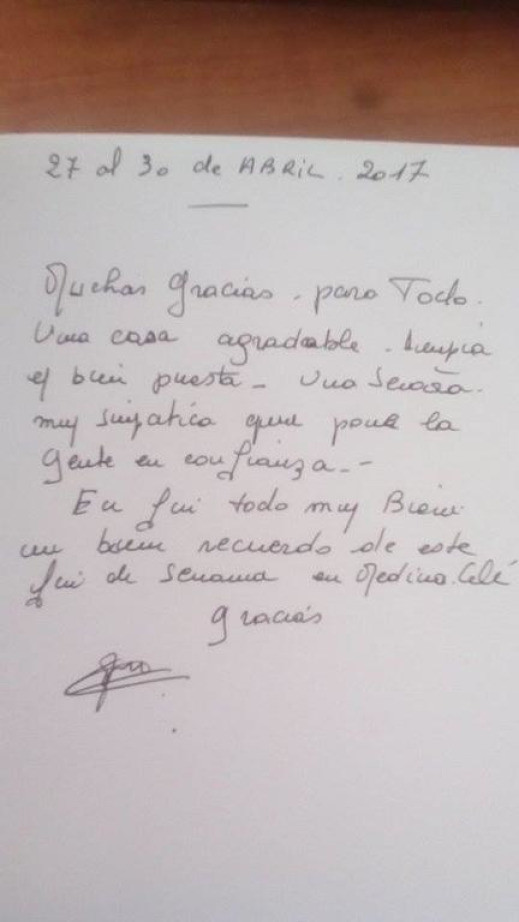 27 al 30 de ABRIL. 2017
Muchas gracias. para Todo.
Una casa agradable. limpia
y bien puesta - Una Senora.
muy simpatica que pone la
gente en confianza. -
En fui todo muy Bien.
un buen recuerdo de este
fui de Semana en Medina. Celi
gracias